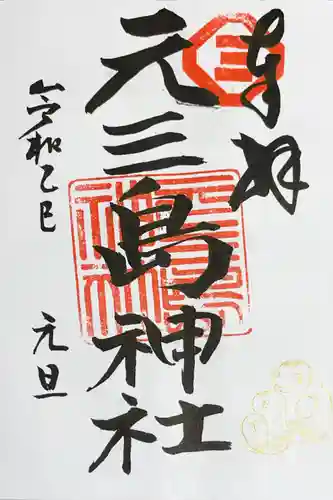 奉拝
元三島神社
令和乙巳
元旦